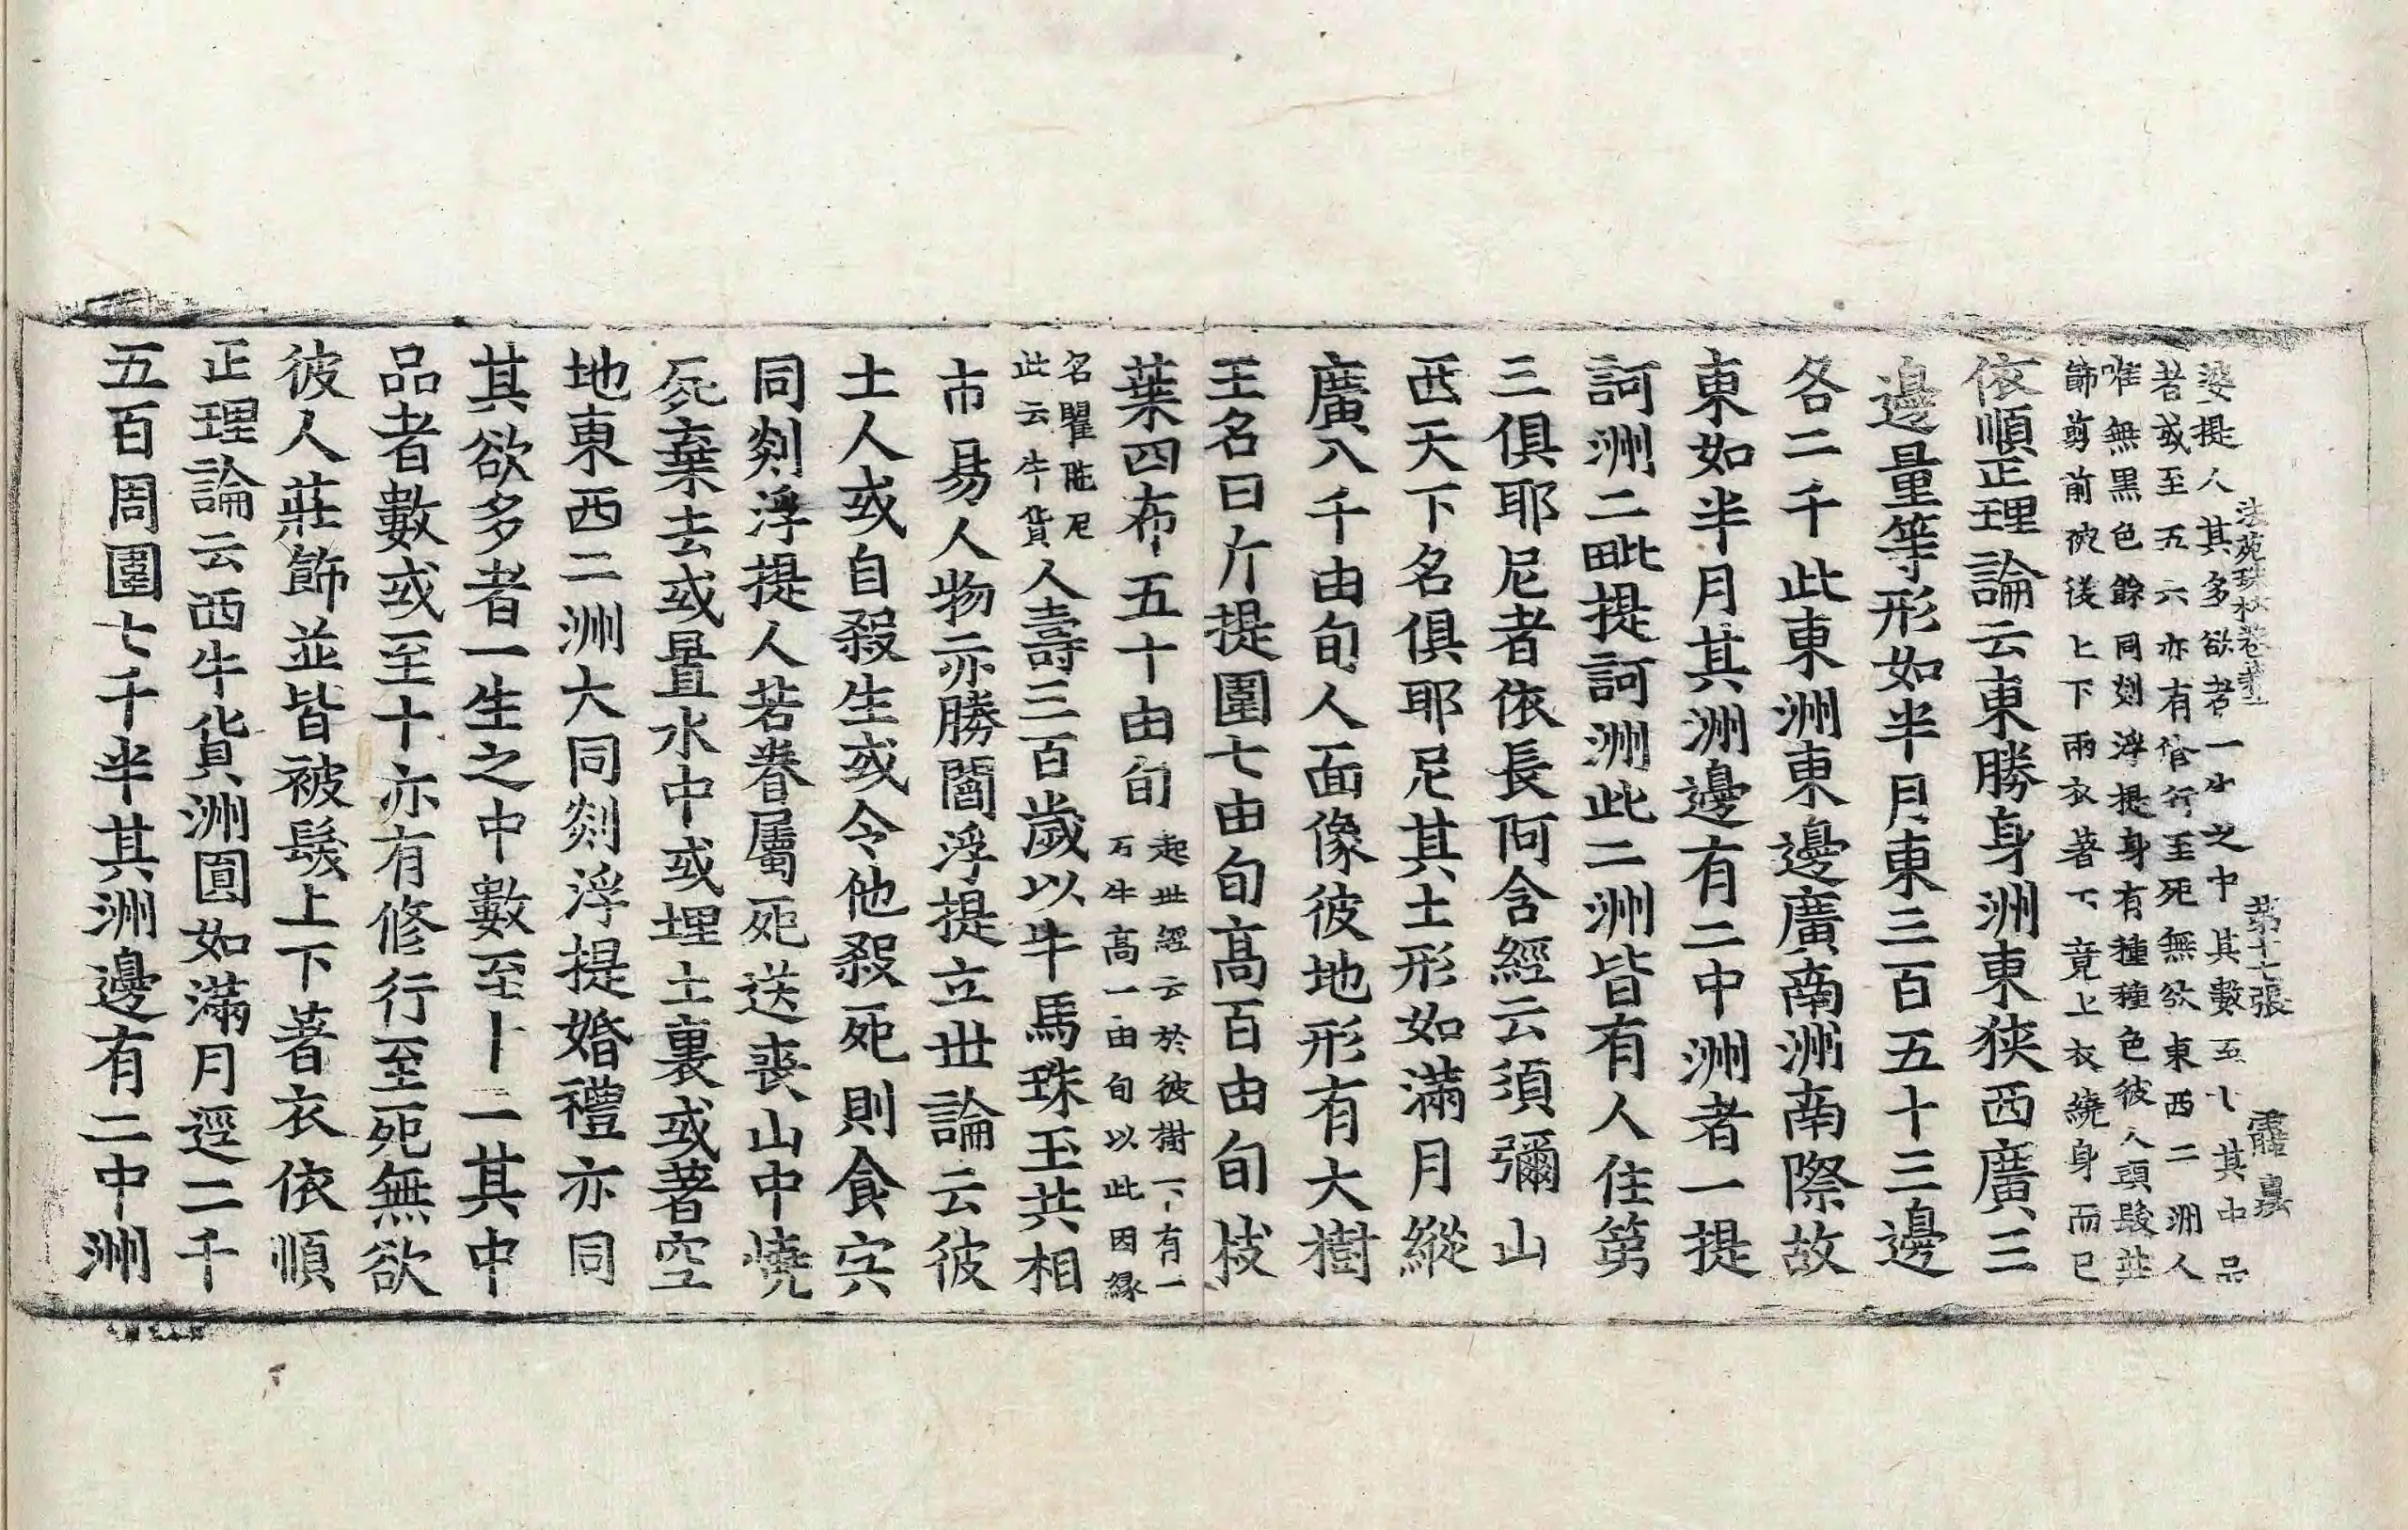 婆提人其多欲者一生之中其數至七其中品
法苑珠林卷第二 第十七張 靇
者或至五六亦有修行至死無欲東西二洲人
唯無黒色餘同剡浮提身有種種色彼人頭髮莊
飾剪前被後上下兩衣著下竟上衣繞身而已
依順正理論云東勝身洲東狹西廣三
邊量等形如半月東三百五十三邊
各二千此東洲東邊廣南洲南際故
東如半月其洲邊有二中洲者一提
訶洲二毗提訶洲此二洲皆有人住第
三俱耶尼者依長阿含經云須彌山
西天下名俱耶尼其土形如滿月縱
廣八千由旬人面像彼地形有大樹
王名曰斤提圍七由旬高百由旬枝
葉四布五十由旬起世經云於彼樹下有一
石牛高一由旬以此因縁
名瞿陁尼
此云牛貨人壽三百歲以牛馬珠玉共相
市易人物亦勝閻浮提立世論云彼
土人或自殺生或令他殺死則食宍
同剡浮提人若眷屬死送喪山中燒
屍棄去或置水中或埋土裏或著空
地東西二洲大同剡浮提婚禮亦同
其欲多者一生之中數至十二其中
品者數或至十亦有修行至死無欲
彼人莊飾並皆被髮上下著衣依順
正理論云西牛貨洲圓如滿月逕二千
五百周圍七千半其洲邊有二中洲